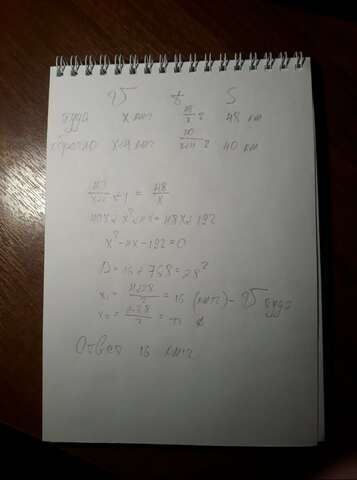 v t S
туда x км/ч 48/x ч 48 км
обратно x+4 км/ч 40/x+4 ч 40 км
40/x+4 + 1 = 48/x
40x + x² + 4x = 48x + 192
x² - 4x - 192 = 0
D = 16 + 768 = 28²
x₁ = 4+28/2 = 16 (км/ч) - v туда
x₂ = 4-28/2 = ∅
Ответ 16 км/ч